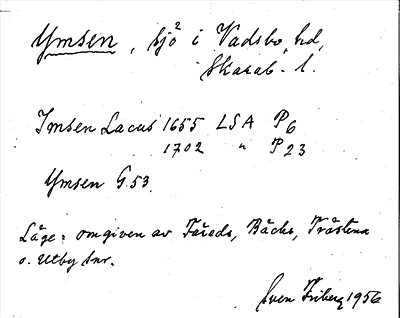 Ymsen, sjö² i Vadsbo hd,
Skarab. l.
Imsen Lacus 1655 LSA P6
1702 " P23
Ymsen G.53.
Läge: omgiven av Fåreds, Bäcks, Trästena
o. Utby snr.
Sven Friberg 1956